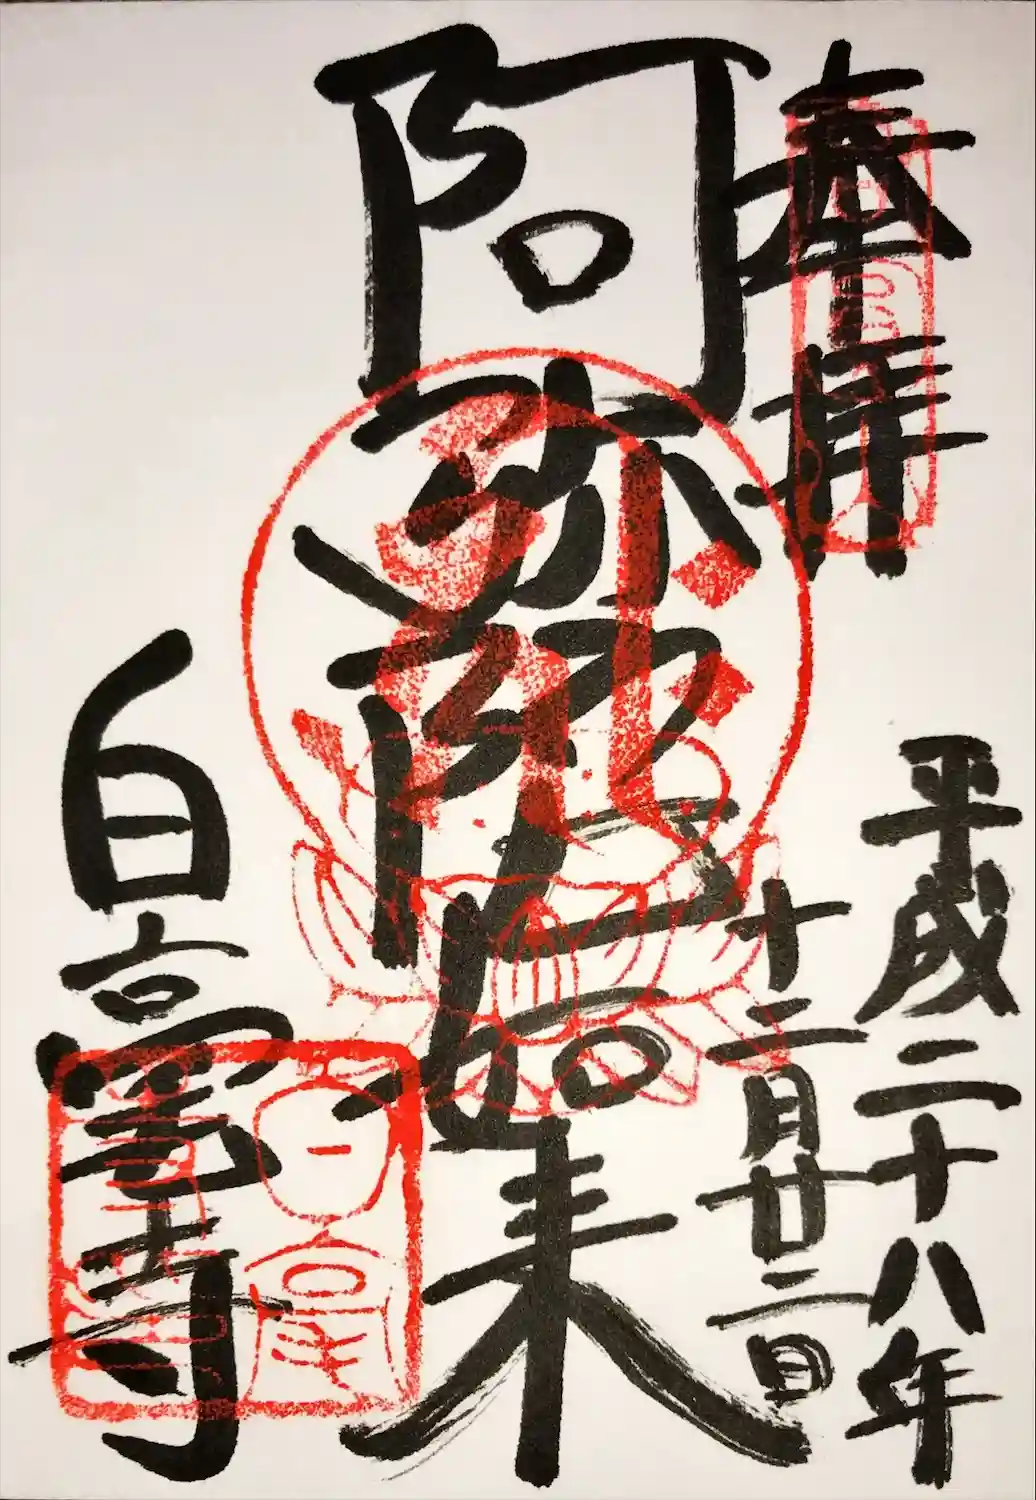 奉拝
平成二十八年
十二月廿二日
阿弥陀如来
白毫寺